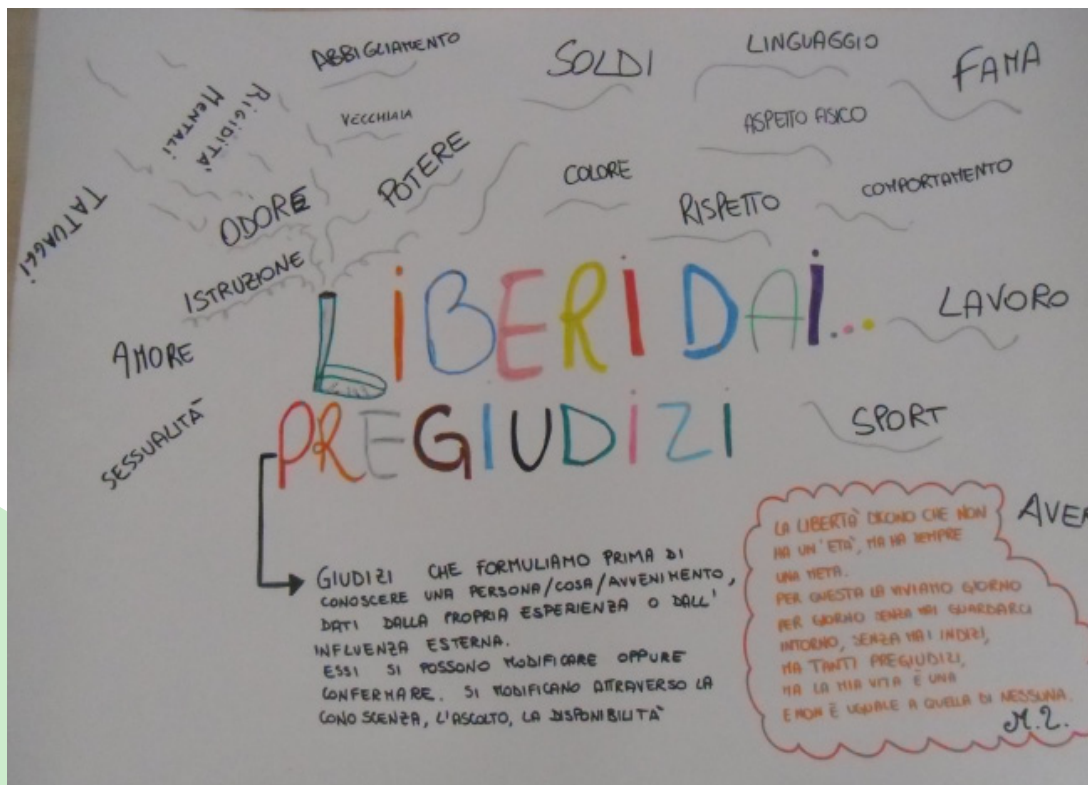 ABBIGLIAMENTO
SOLDI
LINGUAGGIO
FAMA
RIGIDITÀ
MENTALI
VECCHIAIA
ASPETTO FISICO
TATUAGGI
ODORE
POTERE
COLORE
RISPETTO
COMPORTAMENTO
ISTRUZIONE
AMORE
LIBERI DAI...
LAVORO
SESSUALITÀ
PREGIUDIZI
SPORT
GIUDIZI CHE FORMULIAMO PRIMA DI
CONOSCERE UNA PERSONA/COSA/AVVENIMENTO,
DATI DALLA PROPRIA ESPERIENZA O DALL'
INFLUENZA ESTERNA.
ESSI SI POSSONO MODIFICARE OPPURE
CONFERMARE. SI MODIFICANO ATTRAVERSO LA
CONOSCENZA, L'ASCOLTO, LA DISPONIBILITÀ
AVER
LA LIBERTÀ DICONO CHE NON
HA UN'ETÀ, MA HA SEMPRE
UNA META.
PER QUESTA LA VIVIAMO GIORNO
PER GIORNO SENZA MAI GUARDARCI
INTORNO, SENZA MAI INDIZI,
MA TANTI PREGIUDIZI,
MA LA MIA VITA È UNA
E NON È UGUALE A QUELLA DI NESSUNA.
M.Z.